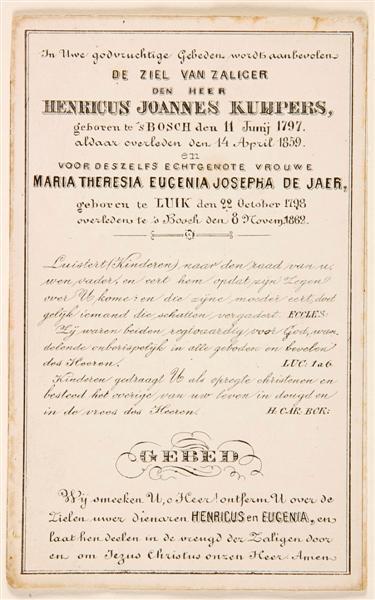 In Uwe godvruchtige Gebeden wordt aanbevolen
DE ZIEL VAN ZALIGER
DEN HEER
HENRICUS JOANNES KUIJPERS,
geboren te 'sBOSCH den 11 Junij 1797.
aldaar overleden den 14 April 1859.
en
VOOR DESZELFS ECHTGENOTE VROUWE
MARIA THERESIA EUGENIA JOSEPHA DE JAER,
geboren te LUIK den 22 October 1798
overleden te 's Bosch den 8 Novem. 1862.
Luistert (Kinderen) naar den raad van u,
wen vader, en eert hem opdat zijn Zegen
over U kome: en die zijne moeder eert, doet
gelijk iemand die schatten vergadert. ECCLES:
Zij waren beiden regtvaardig voor God, wan,
delende onberispelijk in alle geboden en bevelen
des Heeren. LUC. 1 a 6.
Kinderen gedraagt U als opregte christenen en
besteed het overige van uw leven in deugd en
in de vrees des Heeren. H. CAR. BOR:
GEBED
Wij smeeken U, o Heer! ontferm U over de
Zielen uwer dienaren HENRICUS en EUGENIA, en
laat hen deelen in de vreugd der Zaligen door
en om Jezus Christus onzen Heer Amen